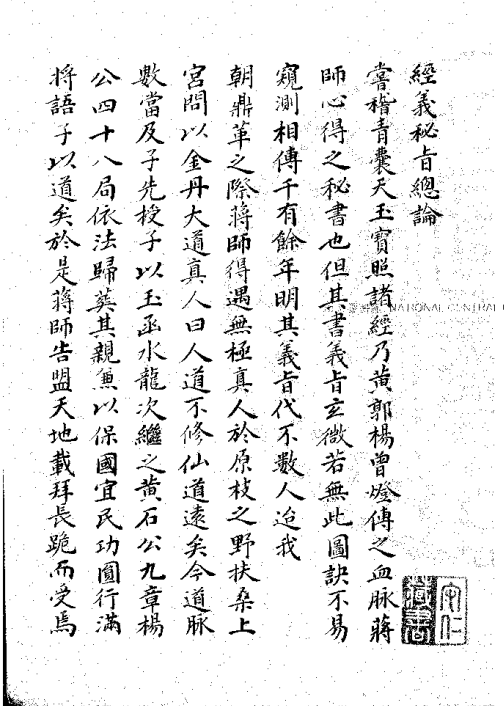 經義秘旨總論
嘗稽青囊天玉寶照諸經乃黃郭楊曾燈傳之血脈蔣
師心得之秘書也但其書義旨玄微若無此圖訣不易
窺測相傳千有餘年明其義旨代不數人迨我
朝鼎革之際蔣師得遇無極真人於原枝之野扶桑上
宮問以金丹大道真人曰人道不修仙道遠矣今道脈
數當及子先授子以玉函水龍次繼之黃石公九章楊
公四十八局依法歸葬其親兼以保國宜民功圓行滿
將語子以道矣於是蔣師告盟天地載拜長跪而受焉
NATIONAL CENTRAL
守仁
藏書